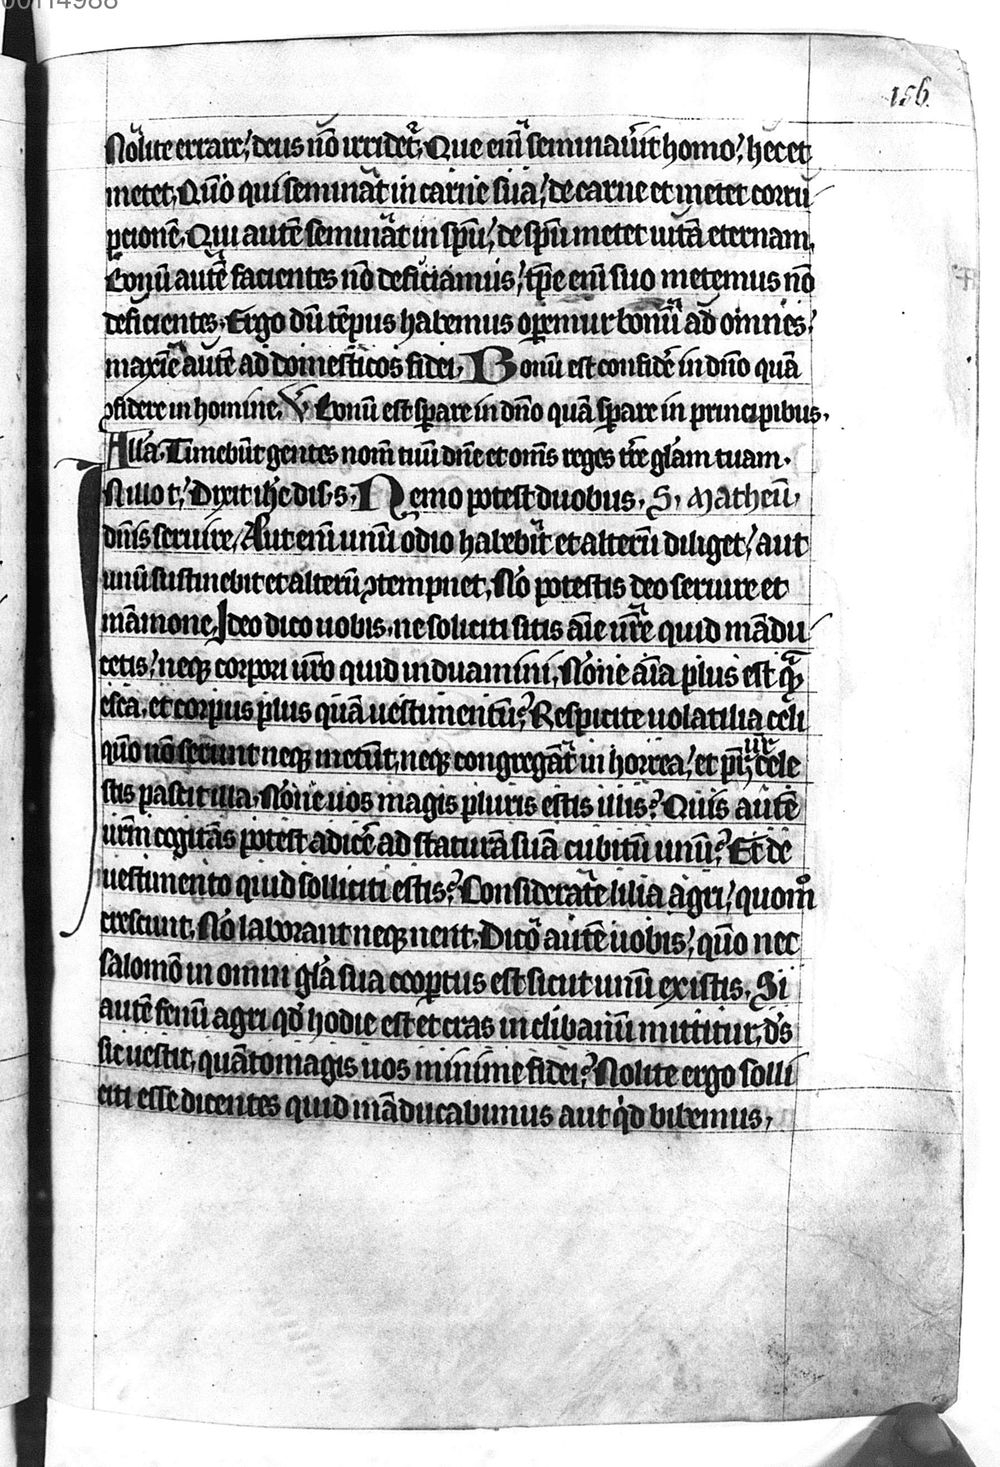 00114988
156.
Nolite errare, deus nō irridet᷑. Que em̄ seminaůit homo, hec et
metet. Qm̄o qui seminat in carne sua, de carne et metet corru
pcionē. Qui autē seminat in sp̄u, de sp̄u metet uitā eternam.
Bonū autē facientes nō deficiamus, tp̄e em̄ suo metemus nō
deficientes. Ergo dū tēpus habemus operemur bonū ad omnes,
maxīe autē ad domesticos fidei. Bonū est confidē in dn̄o quā
ꝯfidere in homine. V Bonū est sꝑare in dn̄o quā sꝑare in principibus.
Alla. Timebūt gentes nom̄ tuū dn̄e et om̄s reges tr̄e gl̄am tuam.
In illo t̄. Dixit ih̄c dis. s. Nemo potest duobus. S. Matheū.
dn̄is seruire. Aut em̄ unū odio habebit et alterū diliget, aut
unū sustinebit et alterū ꝯtempnet. Nō potestis deo seruire et
māmone. Ideo dico uobis, ne soliciti sitis aīe ur̄e quid mādu
cetis, neqꝫ corpori ur̄o quid induamini. Nōne aīa plus est qȝ
esca, et corpus plus quā uestimentū? Respicite uolatilia celi
qm̄o nō serunt neqꝫ metūt, neqꝫ congregāt in horrea, et pr̄ ur̄ cele
stis pascit illa. Nōne uos magis pluris estis illis? Quis autē
ur̄m cogitās potest adicē ad staturā suā cubitū unū? Et de
uestimento quid solliciti estis? Considerate lilia agri, quom̊
crescunt. Nō laborant neqꝫ nent. Dico autē uobis, qm̄o nec
salomō in omni gl̄a sua cooꝑtus est sicut unū ex istis. Si
autē fenū agri qd̄ hodie est et cras in clibanū mittitur, ds̄
sic uestit, quātomagis uos minime fidei? Nolite ergo solli
citi esse dicentes quid māducabimus aut qd̄ bibemus,